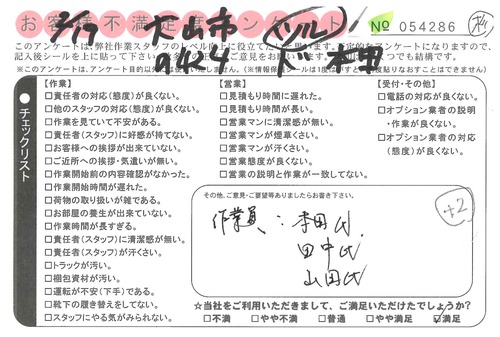 お客様不満足度アンケート
№ 054286
2/17 犬山市
このアンケートは、弊社作業スタッフのレベル向上に役立てたい
記入後シールを上に貼って下さい。
つでも結構です。
※このアンケートは、アンケート目的以外
チェックリスト
【作業】
□責任者の対応(態度)が良くない。
□他のスタッフの対応(態度)が良くない。
□作業を見ていて不安がある。
□責任者(スタッフ)に好感が持てない。
□お客様への挨拶が出来ていない。
□ご近所への挨拶・気遣いが無い。
□作業開始前の内容確認がなかった。
□作業開始時間が遅れた。
□荷物の取り扱いが雑である。
□お部屋の養生が出来ていない。
□作業時間が長すぎる。
□責任者(スタッフ)に清潔感が無い。
□責任者(スタッフ)が汗くさい。
□トラックが汚い。
□梱包資材が汚い。
□運転が不安(下手)である。
□靴下の履き替えをしてない。
□スタッフにやる気がみられない。
【営業】
□見積もり時間に遅れた。
□見積もり時間が長い。
□営業マンに清潔感が無い。
□営業マンが煙草くさい。
□営業マンが汗くさい。
□営業態度が良くない。
□営業の説明と作業が一致してない。
【受付・その他】
□電話の対応が良くない。
□オプション業者の説明
・作業が良くない。
□オプション業者の対応
(態度)が良くない。
その他、ご意見・ご要望等ありましたらお書き下さい。
作業員:本田氏
田中氏
山田氏
+2
☆当社をご利用いただきまして、ご満足いただけたでしょうか?
□不満 □やや不満 □普通 □やや満足 ☑満足